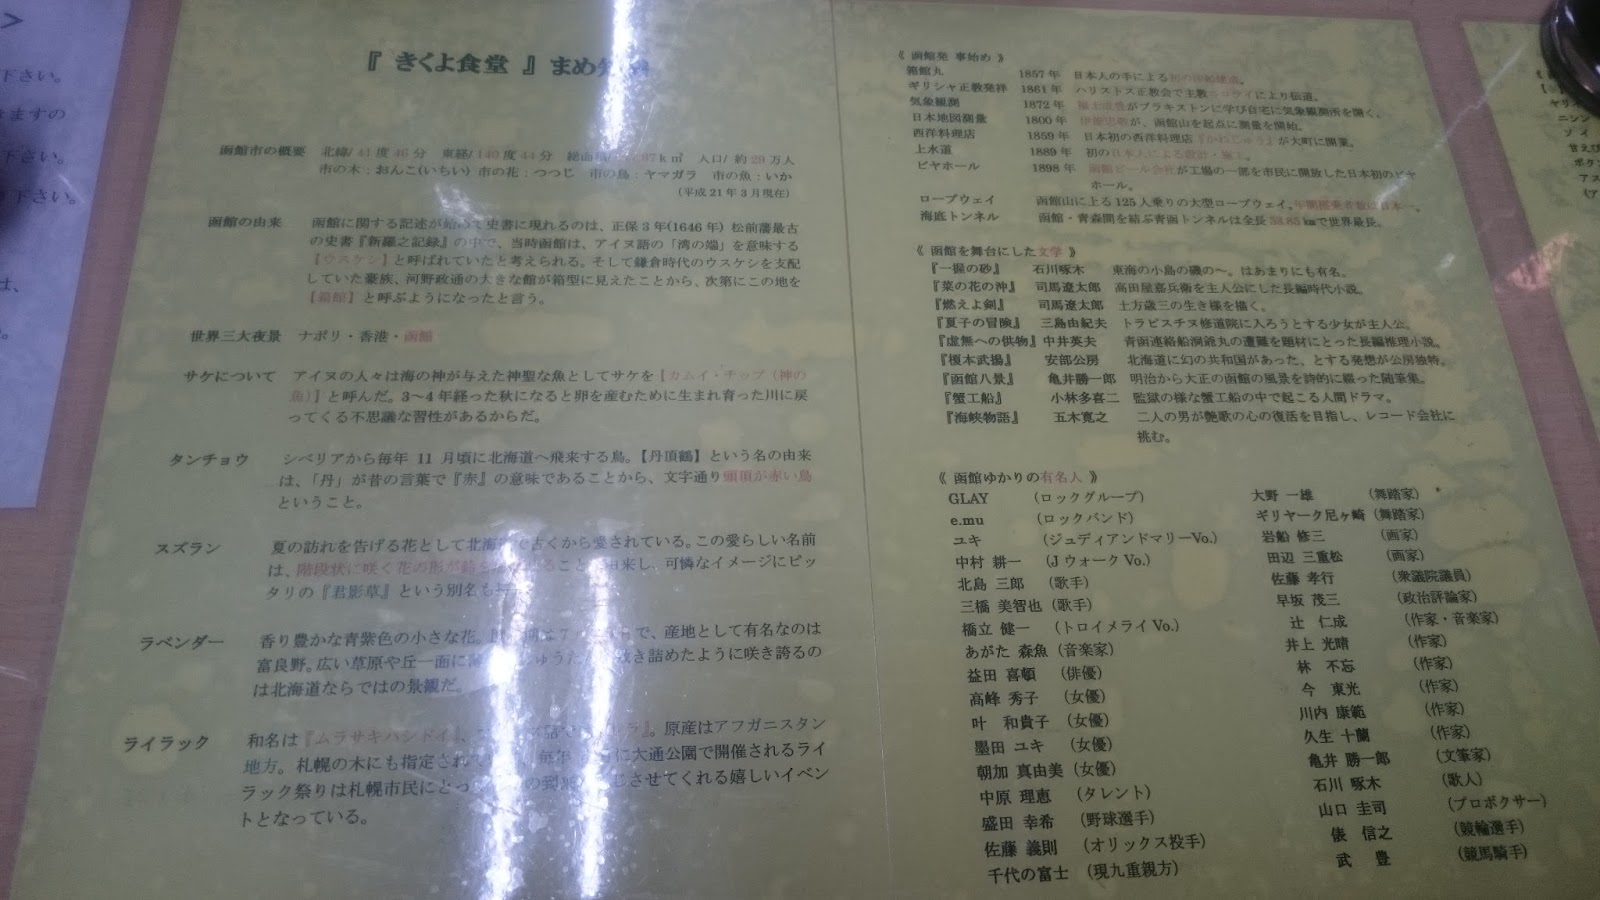 『 きくよ食堂 』 まめ
函館市の概要 北緯/ 41 度 46 分 東経/ 140 度 44 分 総面積 87k㎡ 人口/ 約 29 万人
市の木：おんこ(いちい) 市の花：つつじ 市の鳥：ヤマガラ 市の魚：いか
(平成 21 年 3 月現在)
函館の由来 函館に関する記述が始めて史書に現れるのは、正保 3 年(1646 年) 松前藩最古
の史書『新羅之記録』の中で、当時函館は、アイヌ語の「湾の端」を意味する
【ウスケシ】と呼ばれていたと考えられる。そして鎌倉時代のウスケシを支配
していた豪族、河野政通の大きな館が箱型に見えたことから、次第にこの地を
【箱館】と呼ぶようになったと言う。
世界三大夜景 ナポリ・香港・函館
サケについて アイヌの人々は海の神が与えた神聖な魚としてサケを【カムイ・チップ（神の
魚）】と呼んだ。3～4 年経った秋になると卵を産むために生まれ育った川に戻
ってくる不思議な習性があるからだ。
タンチョウ シベリアから毎年 11 月頃に北海道へ飛来する鳥。【丹頂鶴】という名の由来
は、「丹」が昔の言葉で『赤』の意味であることから、文字通り頭頂が赤い鳥
ということ。
スズラン 夏の訪れを告げる花として北海道で古くから愛されている。この愛らしい名前
は、階段状に咲く花の形が鈴 ること 由来し、可憐なイメージにピッ
タリの『君影草』という別名も
ラベンダー 香り豊かな青紫色の小さな花。 で、産地として有名なのは
富良野。広い草原や丘一面に 敷き詰めたように咲き誇るの
は北海道ならではの景観だ。
ライラック 和名は『ムラサキハシドイ』、 。原産はアフガニスタン
地方。札幌の木にも指定されて 毎年 に大通公園で開催されるライ
ラック祭りは札幌市民にとっ の到来 じさせてくれる嬉しいイベン
トとなっている。
《 函館発 事始め 》
箱館丸 1857 年 日本人の手による初の
ギリシャ正教発祥 1861 年 ハリストス正教会で主教ニコライにより伝道。
気象観測 1872 年 がブラキストンに学び自宅に気象観測所を開く。
日本地図測量 1800 年 伊能忠敬が、函館山を起点に測量を開始。
西洋料理店 1859 年 日本初の西洋料理店『 』が大町に開業。
上水道 1889 年 初の日本人による設計・施工。
ビヤホール 1898 年 函館ビール会社が工場の一部を市民に開放した日本初のビヤ
ホール。
ロープウェイ 函館山に上る 125 人乗りの大型ロープウェイ。年間搭乗者数は日本一。
海底トンネル 函館・青森間を結ぶ青函トンネルは全長 53.85 ㎞で世界最長。
《 函館を舞台にした文学 》
『一握の砂』 石川啄木 東海の小島の磯の～。はあまりにも有名。
『菜の花の沖』 司馬遼太郎 高田屋嘉兵衛を主人公にした長編時代小説。
『燃えよ剣』 司馬遼太郎 土方歳三の生き様を描く。
『夏子の冒険』 三島由紀夫 トラピスチヌ修道院に入ろうとする少女が主人公。
『虚無への供物』 中井英夫 青函連絡船洞爺丸の遭難を題材にとった長編推理小説。
『榎本武揚』 安部公房 北海道に幻の共和国があった、とする発想が公房独特。
『函館八景』 亀井勝一郎 明治から大正の函館の風景を詩的に綴った随筆集。
『蟹工船』 小林多喜二 監獄の様な蟹工船の中で起こる人間ドラマ。
『海峡物語』 五木寛之 二人の男が艶歌の心の復活を目指し、レコード会社に
挑む。
《 函館ゆかりの有名人 》
GLAY （ロックグループ）
e.mu （ロックバンド）
ユキ （ジュディアンドマリーVo.）
中村 耕一 （J ウォーク Vo.）
北島 三郎 （歌手）
三橋 美智也 （歌手）
橋立 健一 （トロイメライ Vo.）
あがた 森魚 （音楽家）
益田 喜頓 （俳優）
高峰 秀子 （女優）
叶 和貴子 （女優）
墨田 ユキ （女優）
朝加 真由美 （女優）
中原 理恵 （タレント）
盛田 幸希 （野球選手）
佐藤 義則 （オリックス投手）
千代の富士 （現九重親方）
大野 一雄 （舞踏家）
ギリヤーク尼ヶ崎 （舞踏家）
岩船 修三 （画家）
田辺 三重松 （画家）
佐藤 孝行 （衆議院議員）
早坂 茂三 （政治評論家）
辻 仁成 （作家・音楽家）
井上 光晴 （作家）
林 不忘 （作家）
今 東光 （作家）
川内 康範 （作家）
久生 十蘭 （作家）
亀井 勝一郎 （文筆家）
石川 啄木 （歌人）
山口 圭司 （プロボクサー）
俵 信之 （競輪選手）
武 豊 （競馬騎手）